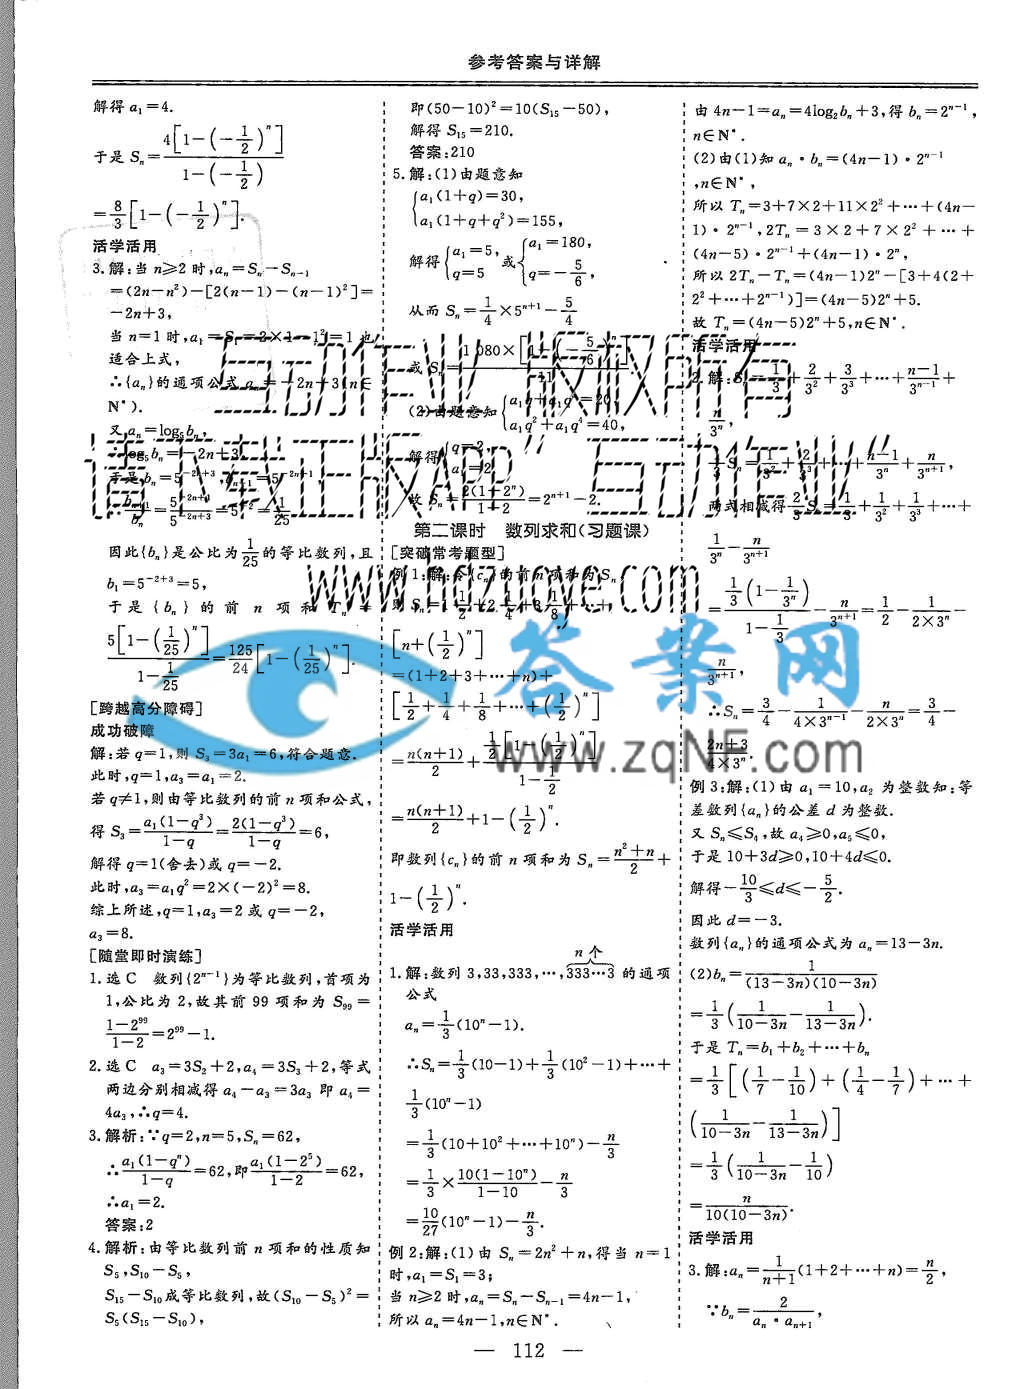 参考答案与详解
解得 a₁=4.
于是 Sₙ=4[1-(-1/2)ⁿ]/(1-(-1/2))
=8/3[1-(-1/2)ⁿ].
活学活用
3.解:当 n≥2 时,aₙ=Sₙ-Sₙ₋₁
=(2n-n²)-[2(n-1)-(n-1)²]=
-2n+3,
当 n=1 时,a₁=S₁=2×1-1²=1 也
适合上式,
∴{aₙ}的通项公式 aₙ=-2n+3(n∈
N*).
又 aₙ=log₅bₙ,
∴log₅bₙ=-2n+3,
于是 bₙ=5⁻²ⁿ⁺³,bₙ₊₁=5⁻²ⁿ⁺¹
∴bₙ₊₁/bₙ=5⁻²ⁿ⁺¹/5⁻²ⁿ⁺³=5⁻²=1/25
因此{bₙ}是公比为1/25的等比数列,且
b₁=5⁻²⁺³=5,
于是{bₙ}的前 n 项和 Tₙ=
5[1-(1/25)ⁿ]/(1-1/25)=125/24[1-(1/25)ⁿ].
[跨越高分障碍]
成功破障
解:若 q=1,则 S₃=3a₁=6,符合题意.
此时,q=1,a₃=a₁=2.
若 q≠1,则由等比数列的前 n 项和公式,
得 S₃=a₁(1-q³)/(1-q)=2(1-q³)/(1-q)=6,
解得 q=1(舍去)或 q=-2.
此时,a₃=a₁q²=2×(-2)²=8.
综上所述,q=1,a₃=2 或 q=-2,
a₃=8.
[随堂即时演练]
1.选 C 数列{2ⁿ⁻¹}为等比数列,首项为
1,公比为 2,故其前 99 项和为 S₉₉=
(1-2⁹⁹)/(1-2)=2⁹⁹-1.
2.选 C a₃=3S₂+2,a₄=3S₃+2,等式
两边分别相减得 a₄-a₃=3a₃ 即 a₄=
4a₃,∴q=4.
3.解析:∵q=2,n=5,Sₙ=62,
∴a₁(1-qⁿ)/(1-q)=62,即a₁(1-2⁵)/(1-2)=62,
∴a₁=2.
答案:2
4.解析:由等比数列前 n 项和的性质知
S₅,S₁₀-S₅,
S₁₅-S₁₀成等比数列,故(S₁₀-S₅)²=
S₅(S₁₅-S₁₀),
即(50-10)²=10(S₁₅-50),
解得 S₁₅=210.
答案:210
5.解:(1)由题意知
{a₁(1+q)=30,
a₁(1+q+q²)=155,
解得{a₁=5, q=5 或{a₁=180, q=-5/6,
从而 Sₙ=1/4×5ⁿ⁺¹-5/4
或 Sₙ=1 080×[1-(-5/6)ⁿ]/11
(2)由题意知{
a₁q²+a₁q⁴=40,
解得{q=2,
故 Sₙ=2(1-2ⁿ)/(1-2)=2ⁿ⁺¹-2.
第二课时 数列求和(习题课)
[突破常考题型]
例 1:解:令{cₙ}的前 n 项和为 Sₙ
则 Sₙ=1 1/2+2 1/4+3 1/8+…+
[n+(1/2)ⁿ]
=(1+2+3+…+n)+
[1/2+1/4+1/8+…+(1/2)ⁿ]
=n(n+1)/2+1/2[1-(1/2)ⁿ]/(1-1/2)
=n(n+1)/2+1-(1/2)ⁿ.
即数列{cₙ}的前 n 项和为 Sₙ=(n²+n)/2+
1-(1/2)ⁿ.
活学活用
n 个
1.解:数列 3,33,333,…,333…3 的通项
公式
aₙ=1/3(10ⁿ-1).
∴Sₙ=1/3(10-1)+1/3(10²-1)+…+
1/3(10ⁿ-1)
=1/3(10+10²+…+10ⁿ)-n/3
=1/3×10(1-10ⁿ)/(1-10)-n/3
=10/27(10ⁿ-1)-n/3.
例 2:解:(1)由 Sₙ=2n²+n,得当 n=1
时,a₁=S₁=3;
当 n≥2 时,aₙ=Sₙ-Sₙ₋₁=4n-1,
所以 aₙ=4n-1,n∈N*.
由 4n-1=aₙ=4log₂bₙ+3,得 bₙ=2ⁿ⁻¹,
n∈N*.
(2)由(1)知 aₙ·bₙ=(4n-1)·2ⁿ⁻¹
,n∈N*,
所以 Tₙ=3+7×2+11×2²+…+(4n-
1)·2ⁿ⁻¹,2Tₙ=3×2+7×2²+…+
(4n-5)·2ⁿ⁻¹+(4n-1)·2ⁿ,
所以 2Tₙ-Tₙ=(4n-1)2ⁿ-[3+4(2+
2²+…+2ⁿ⁻¹)]=(4n-5)2ⁿ+5.
故 Tₙ=(4n-5)2ⁿ+5,n∈N*.
活学活用
2.解:Sₙ=1/3+2/3²+3/3³+…+(n-1)/3ⁿ⁻¹+
n/3ⁿ,
1/3Sₙ=1/3²+2/3³+…+(n-1)/3ⁿ+n/3ⁿ⁺¹,
两式相减得2/3Sₙ=1/3+1/3²+1/3³+…+
1/3ⁿ-n/3ⁿ⁺¹
=1/3(1-1/3ⁿ)/(1-1/3)-n/3ⁿ⁺¹=1/2-1/(2×3ⁿ)-
n/3ⁿ⁺¹,
∴Sₙ=3/4-1/(4×3ⁿ⁻¹)-n/(2×3ⁿ)=3/4-
(2n+3)/(4×3ⁿ).
例 3:解:(1)由 a₁=10,a₂ 为整数知:等
差数列{aₙ}的公差 d 为整数.
又 Sₙ≤S₄,故 a₄≥0,a₅≤0,
于是 10+3d≥0,10+4d≤0.
解得-10/3≤d≤-5/2.
因此 d=-3.
数列{aₙ}的通项公式为 aₙ=13-3n.
(2)bₙ=1/((13-3n)(10-3n))
=1/3(1/(10-3n)-1/(13-3n)).
于是 Tₙ=b₁+b₂+…+bₙ
=1/3[(1/7-1/10)+(1/4-1/7)+…+
(1/(10-3n)-1/(13-3n))]
=1/3(1/(10-3n)-1/10)
=n/(10(10-3n)).
活学活用
3.解:aₙ=1/(n+1)(1+2+…+n)=n/2,
∵bₙ=2/(aₙ·aₙ₊₁),
— 112 —
互动作业 版权所有
请下载正版APP"互动作业"
www.hdzuoye.com
答案网
www.zqNF.com